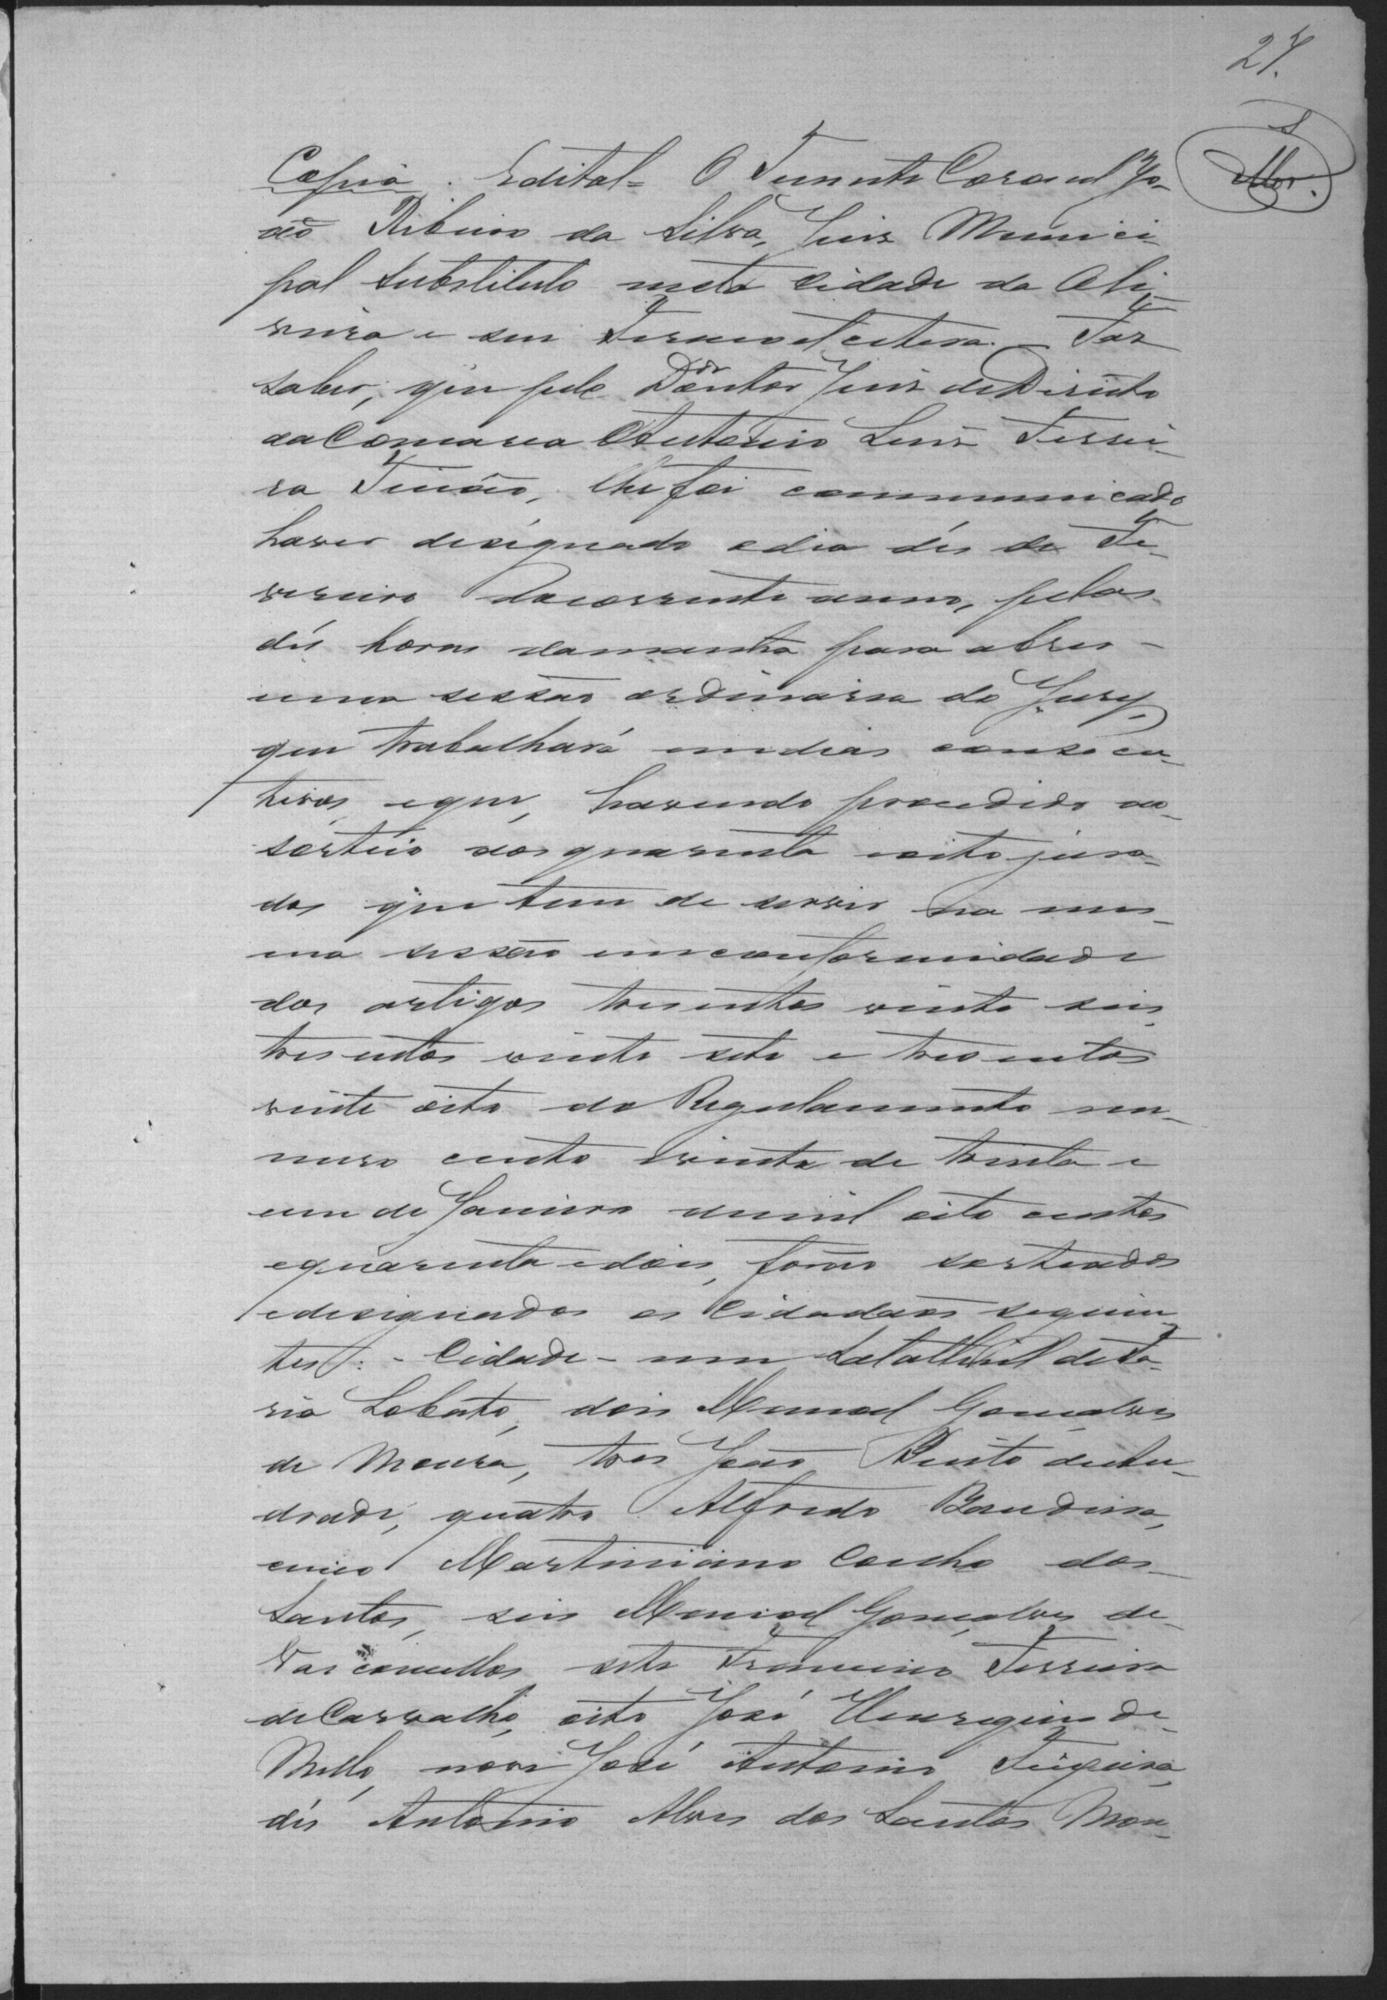 27.
Copia. Edital = O Tenente Coronel Jo-
ão Ribeiro da Silva, Juiz Munici-
pal substituto nesta Cidade da Oli-
veira e seu Termo et cetera. – Faz
saber, que pelo Doutor Juiz de Direito
da Comarca Antonio Luis Ferrei-
ra Tinôco, lhe foi communicado
haver designado o dia dés de Fe-
vereiro do corrente anno, pelas
dés horas da manhã para abrir
uma sessão ordinaria do Jury,
que trabalhará em dias consecu-
tivos, e que, havendo procedido ao
sorteio dos quarenta e oito jura-
dos que tem de servir na mes-
ma sessão em conformidade
dos artigos tresentos vinte seis
tresentos vinte sete e tresentos
vinte oito do Regulamento nu-
mero cento e vinte de trinta e
um de Janeiro de mil oito centos
e quarenta e dois, forão sorteados
e designados os Cidadãos seguin-
tes: - Cidade - um de Fa-
ria Lobato, dois Manoel Gonçalves
de Moura, tres João Bento de An-
drade, quatro Alfredo Bandeira,
cinco Martiniano Coelho dos
Santos, seis Manoel Gonçalves de
Vasconcellos sete Francisco Ferreira
de Carvalho, oito José Henriques de
Mello, nove José Antonio Teixeira,
dés Antonio Alves dos Santos Mon-